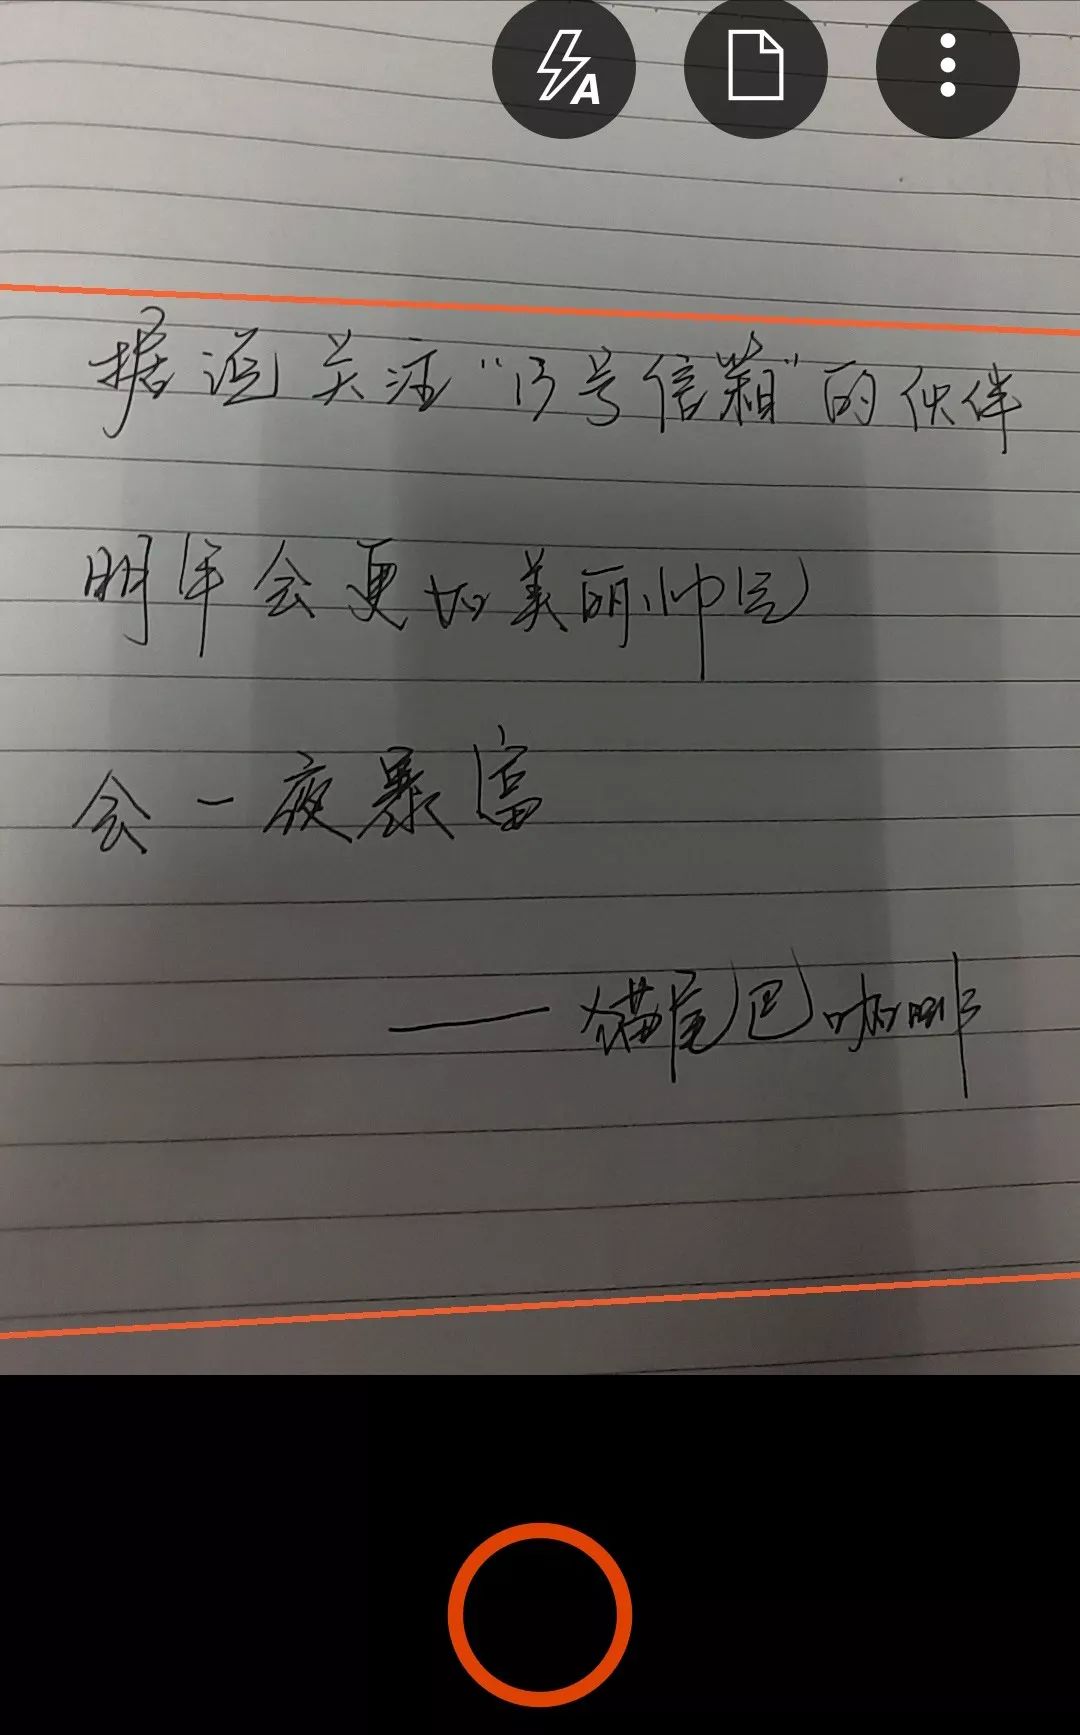 A
据说关注“13号信箱”的伙伴
明年会更加美丽帅气
会一夜暴富
——猫尾巴咖啡